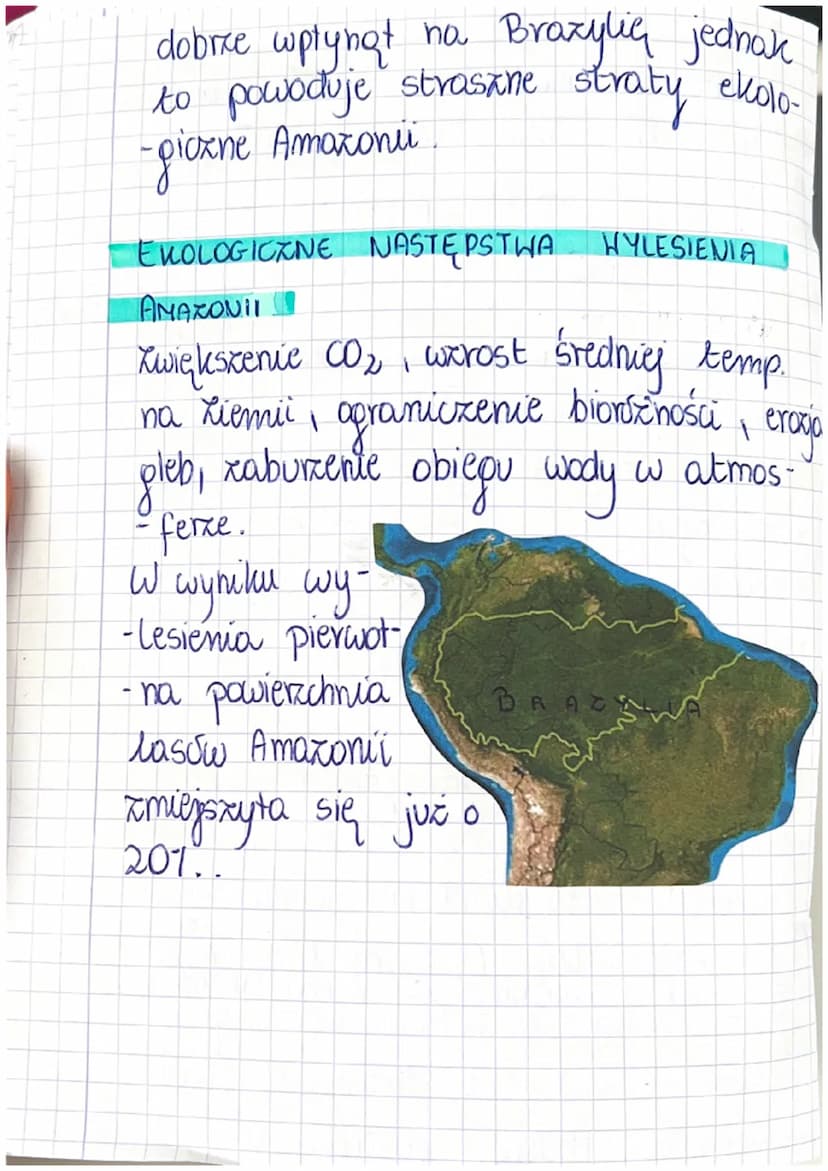 dobrze wpłynął na Brazylię jednak
to powoduje straszne straty ekolo-
-giczne Amazonii.
EKOLOGICZNE NASTĘPSTWA WYLESIENIA
AMAZONII
zwiększenie CO₂, wzrost średniej temp.
na ziemii, ograniczenie bioróżności, erozja
gleb, zaburzenie obiegu wody w atmos-
-ferze.
W wyniku wy-
-lesienia pierwot-
-na powierzchnia
lasów Amazonii
zmiejszyła się już o
20%..
BRAZYLIA